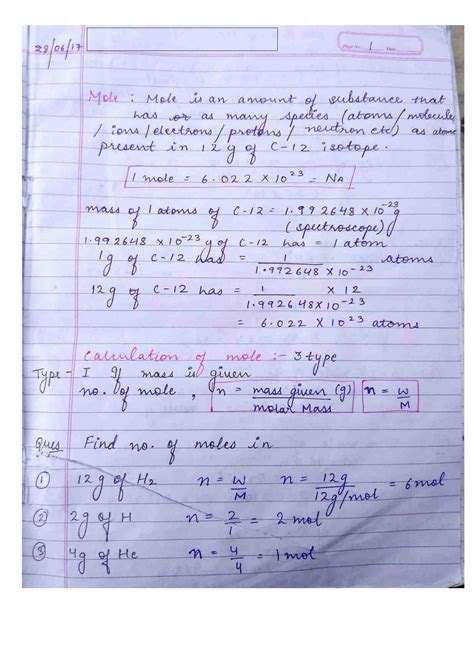 28/06/17
Page No. 1 Date
Mole : Mole is an amount of substance that
has or as many species (atoms/molecules
/ ions/electrons/protons/ neutron etc) as atoms
present in 12 g of C-12 isotope.
1 mole = 6.022 X 10²³ = NA
mass of 1 atoms of C-12 = 1.992648 X 10⁻²³ g
(spectroscope)
1.992648 X 10⁻²³ g of C-12 has = 1 atom
1g of C-12 has = 1 / 1.992648 X 10⁻²³ atoms
12g of C-12 has = 1 / 1.992648 X 10⁻²³ X 12
= 6.022 X 10²³ atoms
Calculation of mole :- 3 type
Type - I If mass is given
no. of mole , n = mass given (g) / molar Mass n = W/M
Ques Find no. of moles in
① 12g of H2 n = W/M n = 12g / 12g/mol = 6mol
② 2g of H n = 2/1 = 2 mol
③ 4g of He n = 4/4 = 1 mol